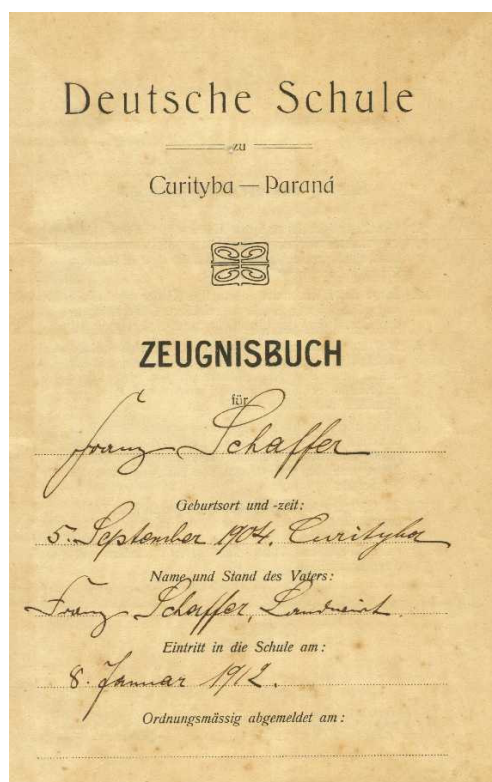 Deutsche Schule
zu
Curityba — Paraná
ZEUGNISBUCH
für
Franz Schaffer
Geburtsort und -zeit:
5. September 1904. Curityba
Name und Stand des Vaters:
Franz Schaffer, Landwirt.
Eintritt in die Schule am:
8. Januar 1912.
Ordnungsmässig abgemeldet am: